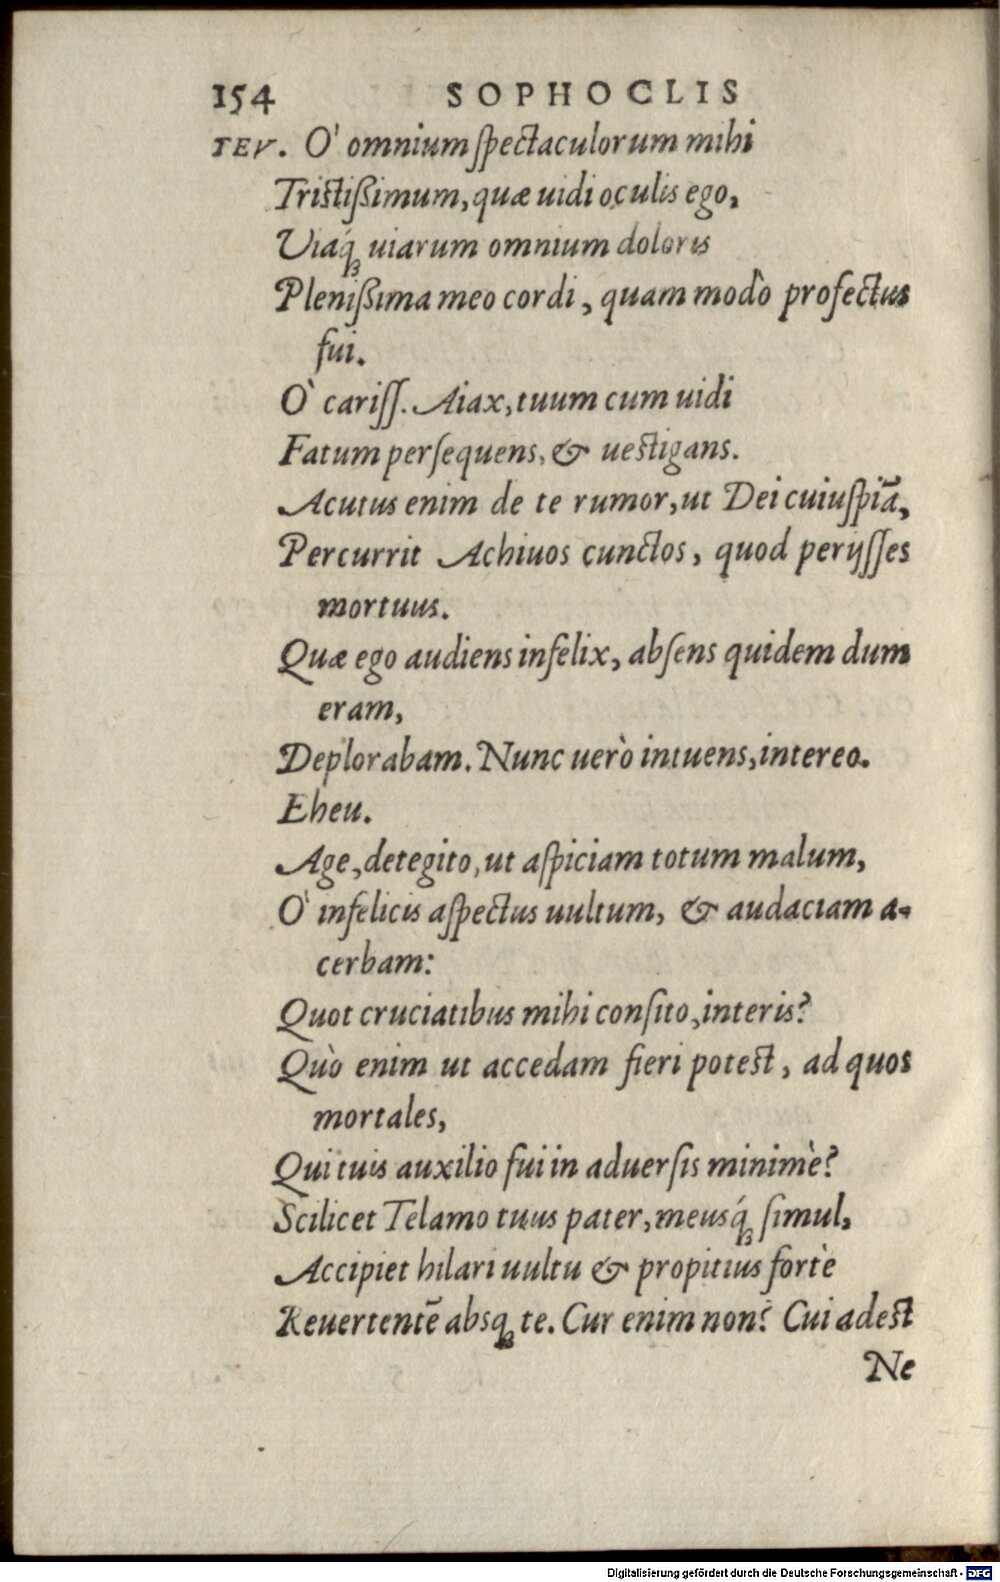 154 SOPHOCLIS
TEV. O' omnium ſpectaculorum mihi
Triſtiſsimum, quæ uidi oculis ego,
Viaq́ꝫ uiarum omnium doloris
Pleniſsima meo cordi, quam modò profectus
fui.
Ò cariſſ. Aiax, tuum cum uidi
Fatum perſequens, & ueſtigans.
Acutus enim de te rumor, ut Dei cuiuſpiã,
Percurrit Achiuos cunctos, quod perijſſes
mortuus.
Quæ ego audiens infelix, abſens quidem dum
eram,
Deplorabam. Nunc uerò intuens, intereo.
Eheu.
Age, detegito, ut aſpiciam totum malum,
O' infelicis aſpectus uultum, & audaciam a-
cerbam:
Quot cruciatibus mihi conſito, interis?
Quò enim ut accedam fieri poteſt, ad quos
mortales,
Qui tuis auxilio fui in aduerſis minimè?
Scilicet Telamo tuus pater, meusq́ꝫ ſimul,
Accipiet hilari uultu & propitius fortè
Reuertentẽ absqꝫ te. Cur enim non? Cui adeſt
Ne
Digitalisierung gefördert durch die Deutsche Forschungsgemeinschaft - DFG